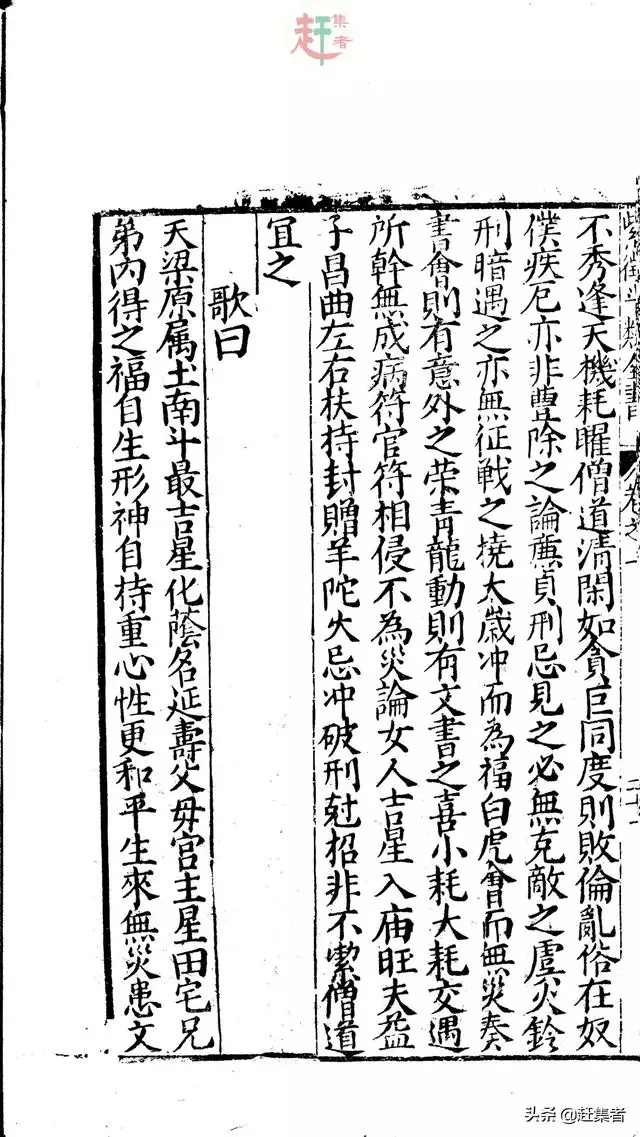 赶集者
不秀逢天機耗曜僧道清閑如貪巨同度則敗倫亂俗在奴
僕疾厄亦非豊除之論亷貞刑忌見之必無克敵之虞火鈴
刑暗遇之亦無征戰之撓太歲冲而為福白虎會而無災奏
書會則有意外之榮青龍動則有文書之喜小耗大耗交遇
所幹無成病符官符相侵不為災論女人吉星入庙旺夫益
子昌曲左右扶持封贈羊陀火忌冲破刑尅招非不潔僧道
宜之
歌曰
天梁原属土南斗最吉星化蔭名延壽父毋宮主星田宅兄
弟内得之福自生形神自持重心性更和平生來無災患文
头条 @赶集者